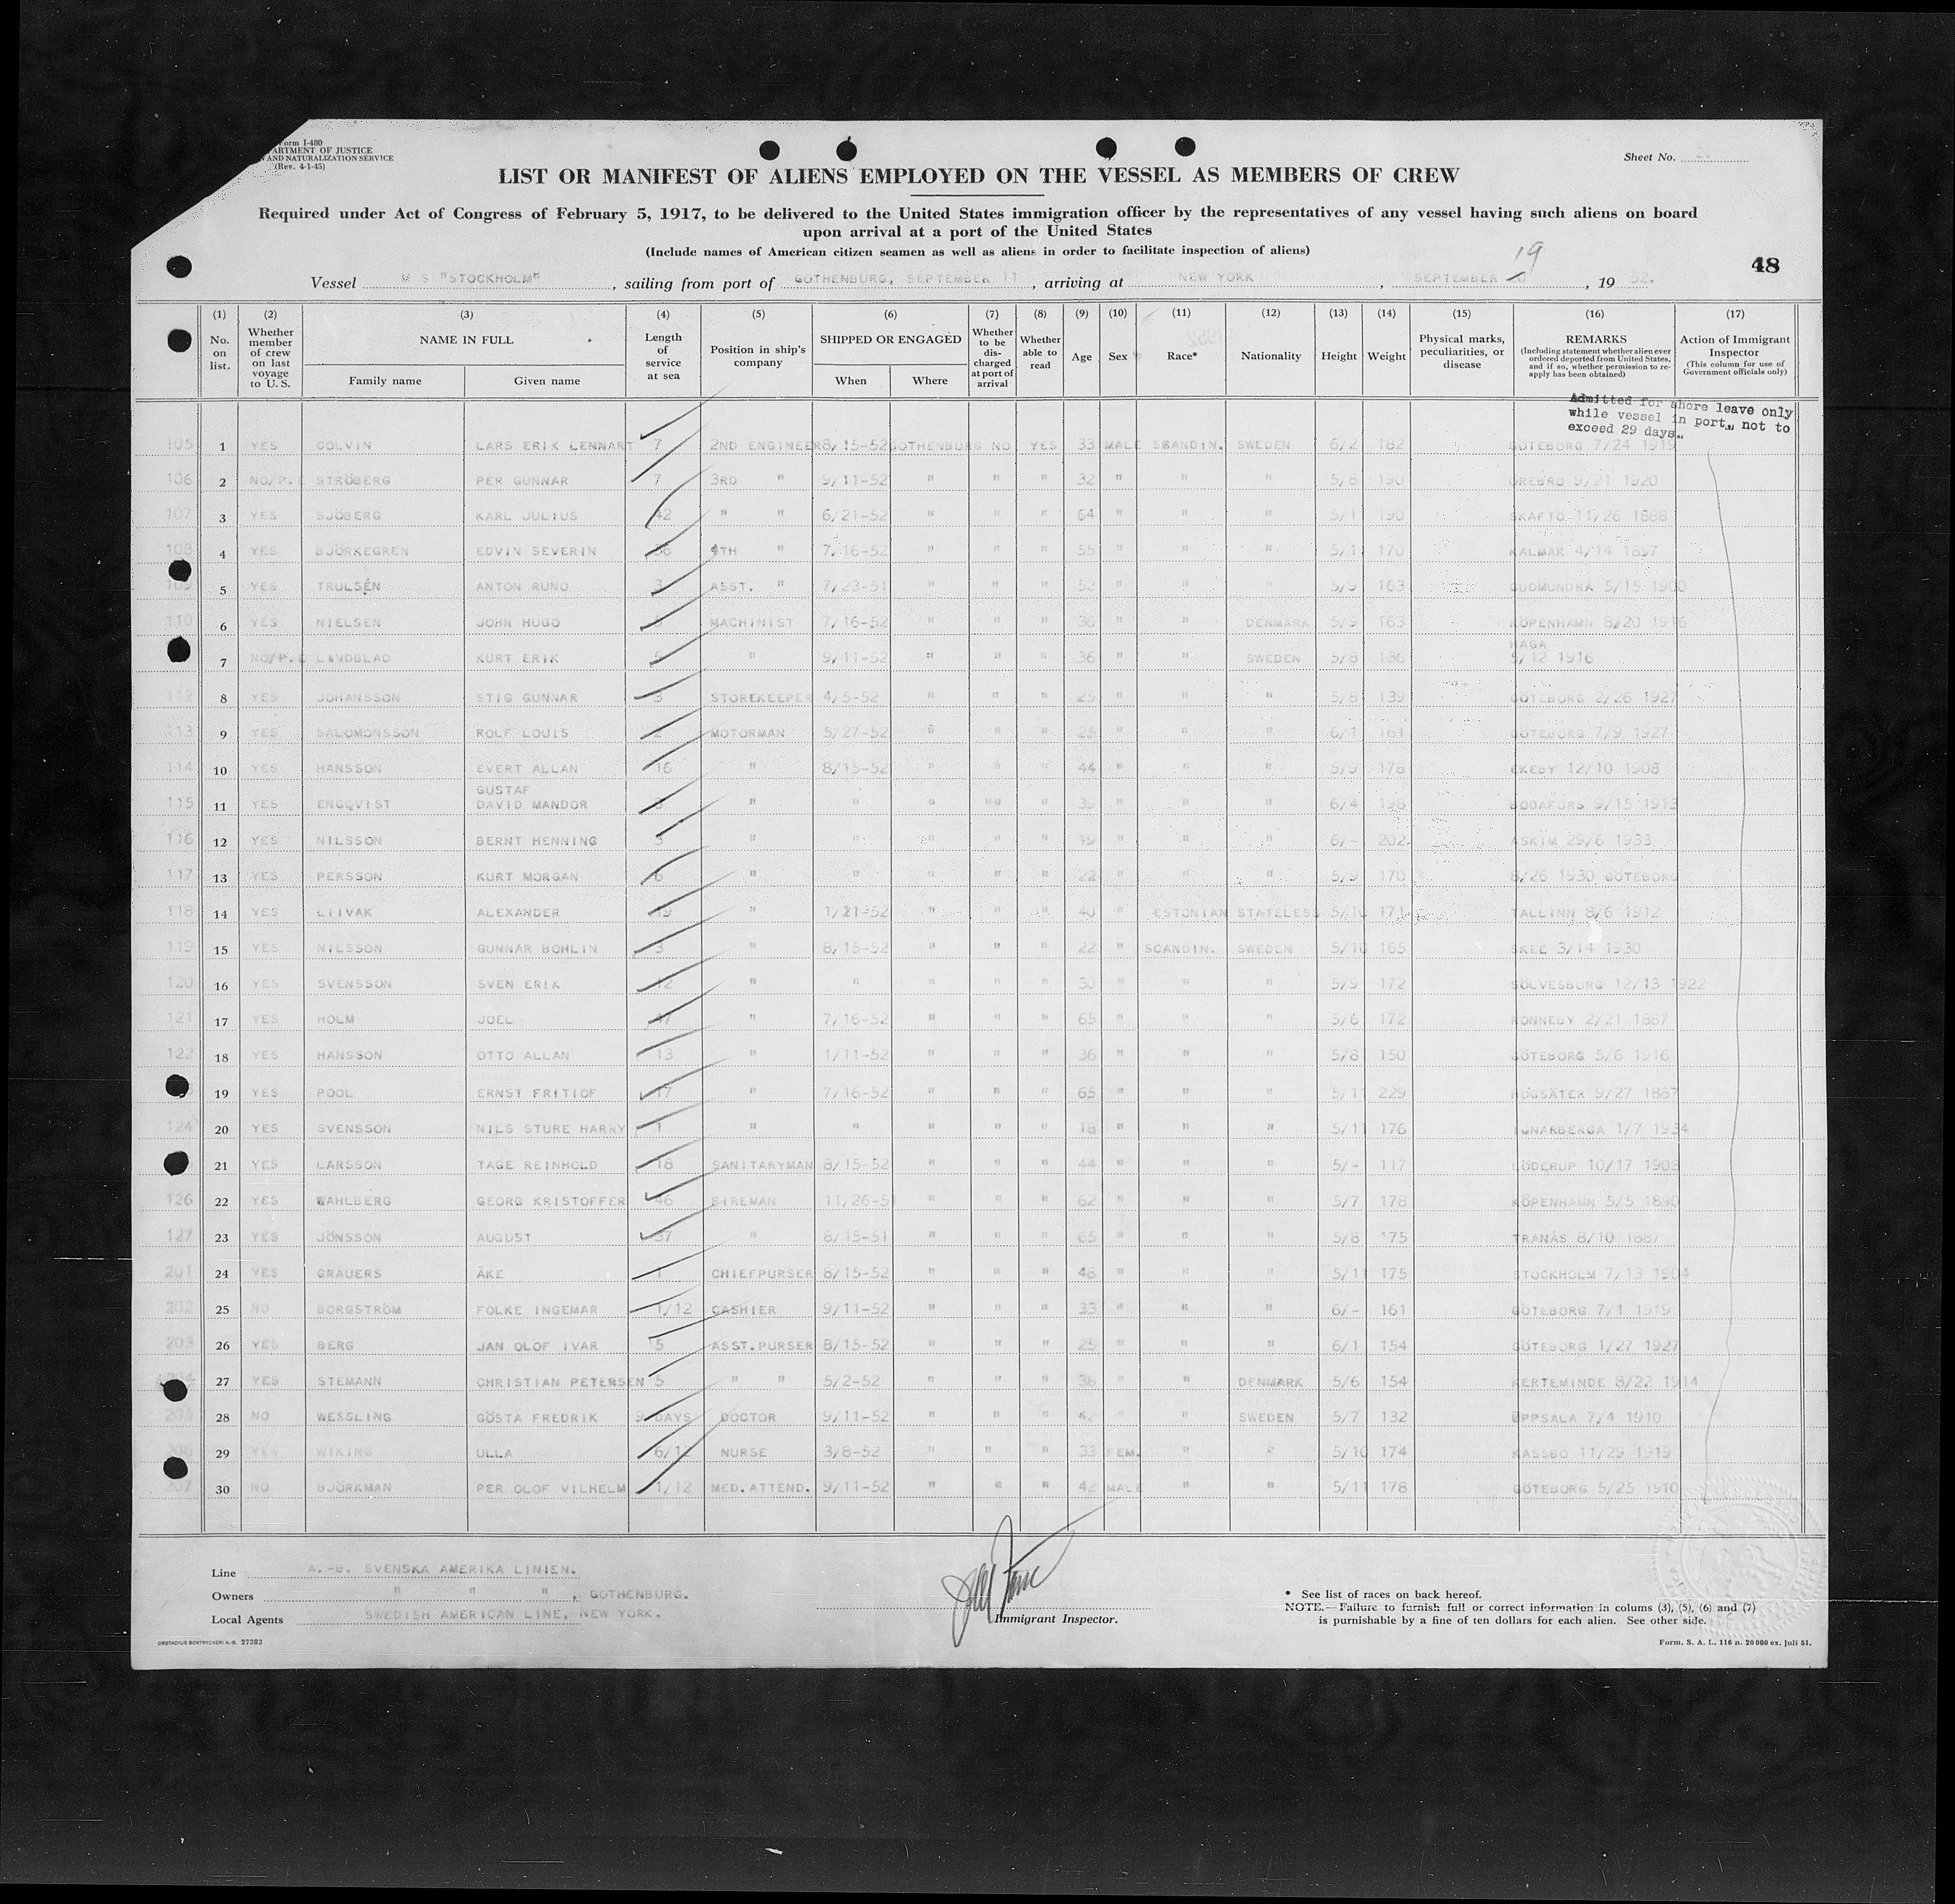 Form I-480
ARTMENT OF JUSTICE
AND NATURALIZATION SERVICE
(Rev. 4-1-45)
Sheet No. 2.
LIST OR MANIFEST OF ALIENS EMPLOYED ON THE VESSEL AS MEMBERS OF CREW
Required under Act of Congress of February 5, 1917, to be delivered to the United States immigration officer by the representatives of any vessel having such aliens on board
upon arrival at a port of the United States
(Include names of American citizen seamen as well as aliens in order to facilitate inspection of aliens)
19
48
Vessel M S "STOCKHOLM", sailing from port of GOTHENBURG, SEPTEMBER 11, arriving at NEW YORK, SEPTEMBER 20, 19 52.
(1) (2) (3) (4) (5) (6) (7) (8) (9) (10) (11) (12) (13) (14) (15) (16) (17)
No. on list. Whether member of crew on last voyage to U. S. NAME IN FULL Family name Given name Length of service at sea Position in ship's company SHIPPED OR ENGAGED When Where Whether to be discharged at port of arrival Whether able to read Age Sex Race* Nationality Height Weight Physical marks, peculiarities, or disease REMARKS (Including statement whether alien ever ordered deported from United States, and if so, whether permission to reapply has been obtained) Action of Immigrant Inspector (This column for use of Government officials only)
Admitted for shore leave only
while vessel in port, not to
exceed 29 days.
105 1 YES COLVIN LARS ERIK LENNART 7 2ND ENGINEER 8/15-52 GOTHENBURG NO YES 33 MALE SCANDIN. SWEDEN 6/2 182 GÖTEBORG 7/24 1919
106 2 NO/P.E STRÖBERG PER GUNNAR 7 3RD " 9/11-52 " " " 32 " " " 5/8 190 ÖREBRO 9/21 1920
107 3 YES SJÖBERG KARL JULIUS 42 " " 6/21-52 " " " 64 " " " 5/1 190 SKAFTÖ 11/26 1888
108 4 YES BJÖRKEGREN EDVIN SEVERIN 36 4TH " 7/16-52 " " " 55 " " " 5/1 170 KALMAR 4/14 1897
109 5 YES TRULSÉN ANTON RUNO 3 ASST. " 7/23-51 " " " 52 " " " 5/9 163 GUDMUNDRÅ 5/15 1900
110 6 YES NIELSEN JOHN HUGO MACHINIST 7/16-52 " " " 36 " " DENMARK 5/9 163 KÖPENHAMN 8/20 1916
7 NO/P.E LINDBLAD KURT ERIK 5 9/11-52 " " " 36 " " SWEDEN 5/8 136 HAGA 5/12 1916
112 8 YES JOHANSSON STIG GUNNAR 3 STOREKEEPER 4/5-52 " " " 25 " " " 5/8 139 GÖTEBORG 2/26 1927
113 9 YES SALOMONSSON ROLF LOUIS MOTORMAN 5/27-52 " " " 25 " " " 6/1 161 GÖTEBORG 7/9 1927
114 10 YES HANSSON EVERT ALLAN 16 " 8/15-52 " " " 44 " " " 5/9 178 EKEBY 12/10 1908
115 11 YES ENGQVIST GUSTAF DAVID MANDOR 3 " " " " " 39 " " " 6/4 198 BODAFORS 9/15 1913
116 12 YES NILSSON BERNT HENNING 3 " " " " " 19 " " " 6/- 202 ASKIM 29/6 1933
117 13 YES PERSSON KURT MORGAN 6 " " " " " 22 " " " 5/9 170 8/26 1930 GÖTEBORG
118 14 YES LIIVAK ALEXANDER 19 " 1/21-52 " " " 40 " ESTONIAN STATELESS 5/10 171 TALLINN 8/6 1912
119 15 YES NILSSON GUNNAR BOHLIN 3 " 8/15-52 " " " 22 " SCANDIN. SWEDEN 5/10 165 SKEE 3/14 1930
120 16 YES SVENSSON SVEN ERIK 12 " " " " " 30 " " " 5/9 172 SÖLVESBORG 12/13 1922
121 17 YES HOLM JOEL 47 " 7/16-52 " " " 65 " " " 5/6 172 RONNEBY 2/21 1887
122 18 YES HANSSON OTTO ALLAN 13 " 1/11-52 " " " 36 " " " 5/8 150 GÖTEBORG 5/6 1916
19 YES POOL ERNST FRITIOF 17 " 7/16-52 " " " 65 " " " 5/1 229 HÖGSÄTER 9/27 1887
124 20 YES SVENSSON NILS STURE HARRY 1 " " " " " 18 " " " 5/11 176 IGNARBERGA 1/7 1934
21 YES LARSSON TAGE REINHOLD 18 SANITARYMAN 8/15-52 " " " 44 " " " 5/- 117 LÖDERUP 10/17 1908
126 22 YES WAHLBERG GEORG KRISTOFFER 46 FIREMAN 11/26-51 " " " 62 " " " 5/7 178 KÖPENHAMN 5/5 1890
127 23 YES JÖNSSON AUGUST 37 " 8/15-51 " " " 65 " " " 5/8 175 TRANÅS 8/10 1887
201 24 YES GRAUERS ÅKE 1 CHIEFPURSER 8/15-52 " " " 48 " " " 5/11 175 STOCKHOLM 7/13 1904
202 25 NO BORGSTRÖM FOLKE INGEMAR 1/12 CASHIER 9/11-52 " " " 33 " " " 6/- 161 GÖTEBORG 7/1 1919
203 26 YES BERG JAN OLOF IVAR 5 ASST.PURSER 8/15-52 " " " 25 " " " 6/1 154 GÖTEBORG 1/27 1927
27 YES STEMANN CHRISTIAN PETERSEN 5 " " 5/2-52 " " " 38 " " DENMARK 5/6 154 KERTEMINDE 8/22 1914
205 28 NO WESSLING GÖSTA FREDRIK 9 DAYS DOCTOR 9/11-52 " " " 42 " " SWEDEN 5/7 132 UPPSALA 7/4 1910
206 29 YES WIKING ULLA 6/12 NURSE 3/8-52 " " " 33 FEM. " " 5/10 174 KASSBO 11/29 1919
207 30 NO BJÖRKMAN PER OLOF VILHELM 1/12 MED.ATTEND. 9/11-52 " " " 42 MALE " " 5/11 178 GÖTEBORG 5/25 1910
Line A.-B. SVENSKA AMERIKA LINIEN.
Owners " " ", GOTHENBURG.
Local Agents SWEDISH AMERICAN LINE, NEW YORK.
Immigrant Inspector.
* See list of races on back hereof.
NOTE.—Failure to furnish full or correct information in colums (3), (5), (6) and (7)
is punishable by a fine of ten dollars for each alien. See other side.
ORSTADIUS BOKTRYCKERI A.-B. 27303
Form. S. A. L. 116 n. 20 000 ex. juli 51.